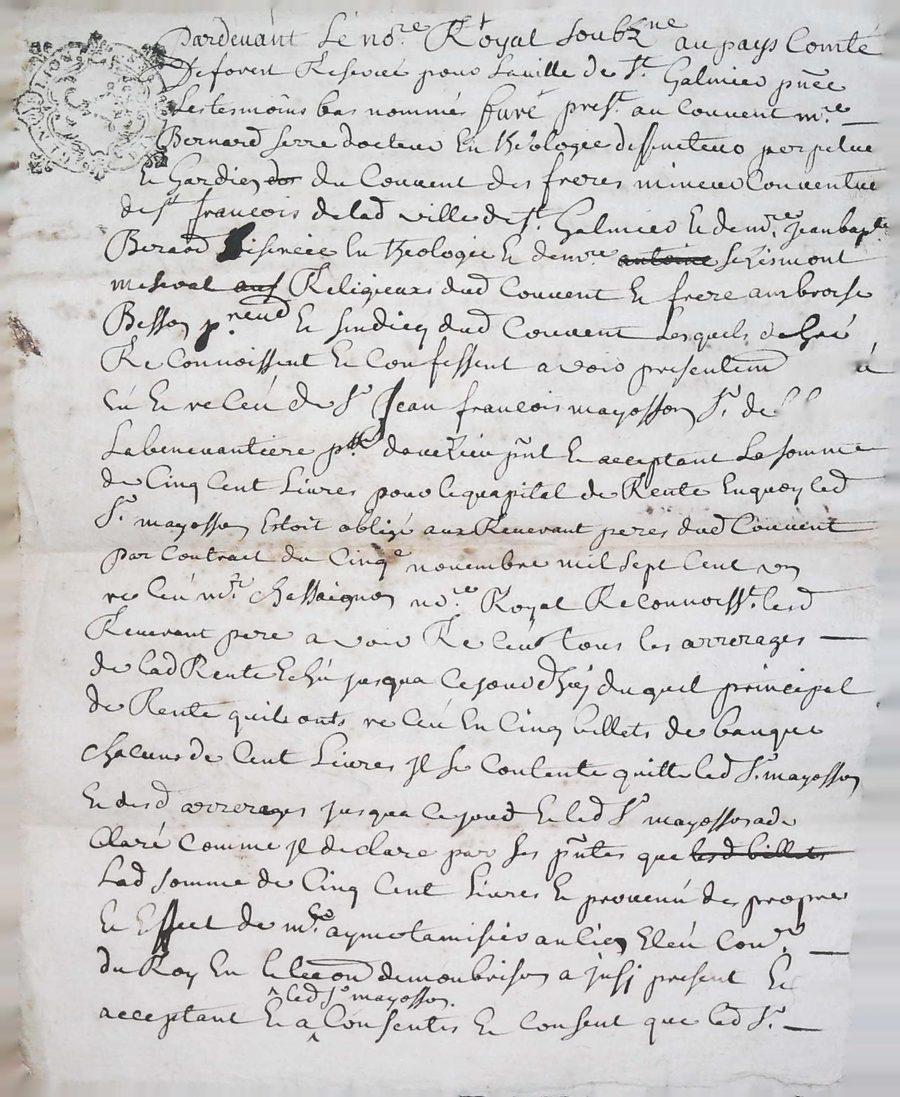 Pardevant Le no.re Royal soubz.ne au pays Comté
De forest Reservé pour La ville de S.t Galmier pñce
Les tesmoins bas nommés furé pres.t au Couvent m.re
Bernard serre docteur En theologie deffiniteur perpetue
Et Gardien du Couvent des freres mineur Conventue
de S.t françois de lad ville de S.t Galmier Et de m.re Jean bapt.e
Berard En theologie Et de m.re antoine
Religieux dud Couvent Et frere ambroise
Besson Et sindicq dud Couvent Lesquels de Gré
Reconnoissent Et Confessent avoir presentem
Eü Et receü de S.r Jean francois mayosson S.r de
Labenevantiere pñt Et acceptant La somme
de Cinq Cent Livres pour le quapital de Rente Enquoy led
S.r mayosson Estoit obligé aux Reverant peres dud Couvent
par Contrait du Cinq.e novembre mil sept Cent un
receü m.re Chassaignon no.re Royal Reconnoiss.t lesd
Reverant pere avoir Receü tous les arrerages
de lad Rente Echü jusqua Ce jourd'huy duquel principal
de Rente quils onts receü En Cinq billets de banque
Chacuns de Cent Livres jl se Contente quitte led S.r mayosson
Et desd arrerages jusqua Ce jourd Et led S.r mayosson a de
Claré Comme jl declare par ses pñtes que lesd billets
Lad somme de Cinq Cent Livres Et provenü des propre
Et Effect de m.re ayme tamisier ancien Eleü Con.er
du Roy En Lelection de monbrison aJusy present Et
led S.r mayosson
acceptant Et a Consentis Et Consent que led S.r